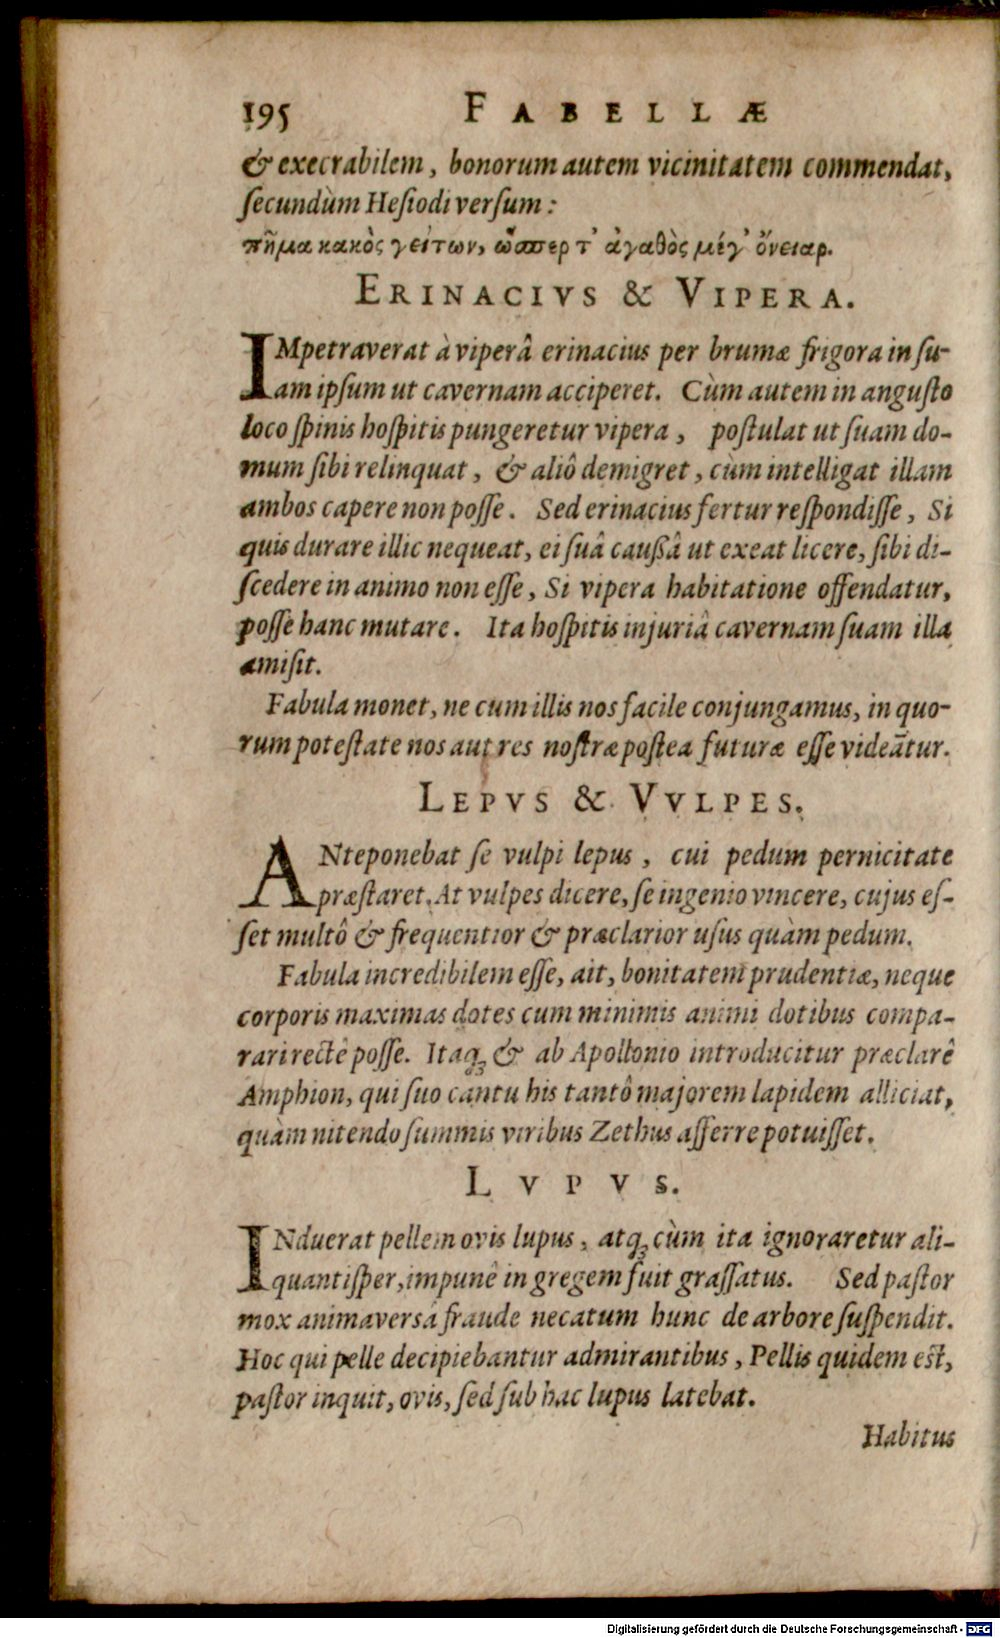 195 FABELLÆ
& execrabilem, bonorum autem vicinitatem commendat,
ſecundùm Heſiodi verſum:
πῆμα κακὸς γείτων, ὥσπερ τ' ἀγαθὸς μέγ' ὄνειαρ.
ERINACIVS & VIPERA.
IMpetraverat à viperâ erinacius per brumæ frigora in ſu-
am ipſum ut cavernam acciperet. Cùm autem in anguſto
loco ſpinis hoſpitis pungeretur vipera, poſtulat ut ſuam do-
mum ſibi relinquat, & aliô demigret, cum intelligat illam
ambos capere non poſſe. Sed erinacius fertur reſpondiſſe, Si
quis durare illic nequeat, ei ſuâ caußâ ut exeat licere, ſibi di-
ſcedere in animo non eſſe, Si vipera habitatione offendatur,
poſſe hanc mutare. Ita hoſpitis injuriâ cavernam ſuam illa
amiſit.
Fabula monet, ne cum illis nos facile conjungamus, in quo-
rum poteſtate nos aut res noſtræ poſtea futuræ eſſe videãtur.
LEPVS & VVLPES.
ANteponebat ſe vulpi lepus, cui pedum pernicitate
præſtaret. At vulpes dicere, ſe ingenio vincere, cujus eſ-
ſet multô & frequentior & præclarior uſus quàm pedum.
Fabula incredibilem eſſe, ait, bonitatem prudentiæ, neque
corporis maximas dotes cum minimis animi dotibus compa-
rari rectê poſſe. Itaq; & ab Apollonio introducitur præclarê
Amphion, qui ſuo cantu his tantô majorem lapidem alliciat,
quàm nitendo ſummis viribus Zethus afferre potuiſſet.
LVPVS.
INduerat pellem ovis lupus, atq; cùm ita ignoraretur ali-
quantiſper, impunê in gregem fuit graſſatus. Sed paſtor
mox animaversâ fraude necatum hunc de arbore ſuſpendit.
Hoc qui pelle decipiebantur admirantibus, Pellis quidem eſt,
paſtor inquit, ovis, ſed ſub hac lupus latebat.
Habitus
Digitalisierung gefördert durch die Deutsche Forschungsgemeinschaft - DFG